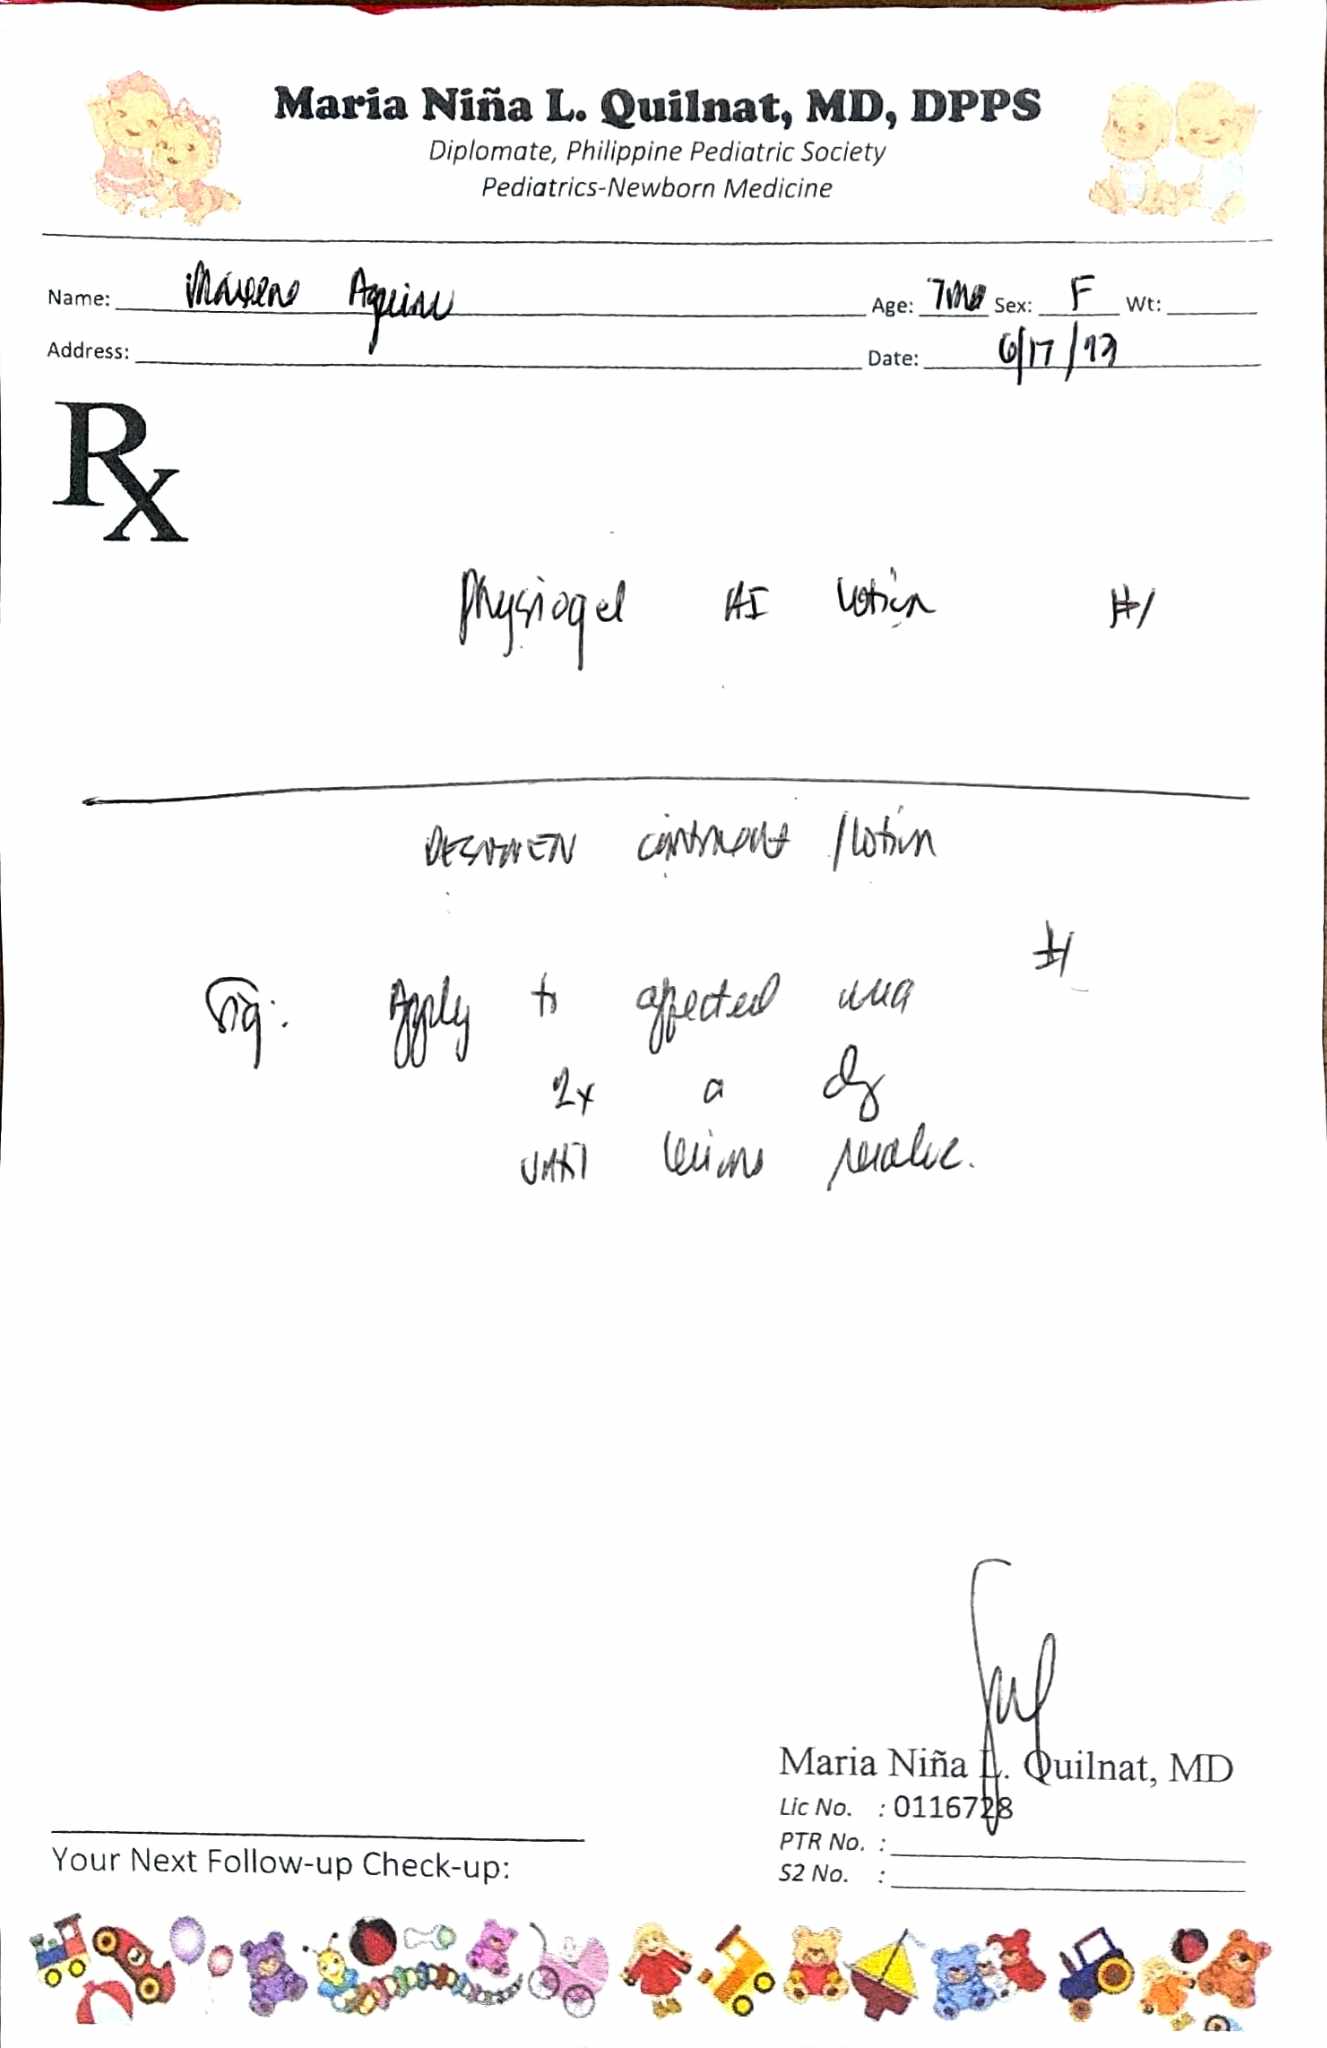 Maria Niña L. Quilnat, MD, DPPS
Diplomate, Philippine Pediatric Society
Pediatrics-Newborn Medicine
Name: Age: 7mo Sex: F Wt:
Address: Date: 6/17/23
Rx
Physiogel AI lotion #1
ointment /lotion
#1
Sig: Apply to affected area
2x a day
until lesions resolve.
Maria Niña L. Quilnat, MD
Lic No. : 0116728
PTR No. :
S2 No. :
Your Next Follow-up Check-up: